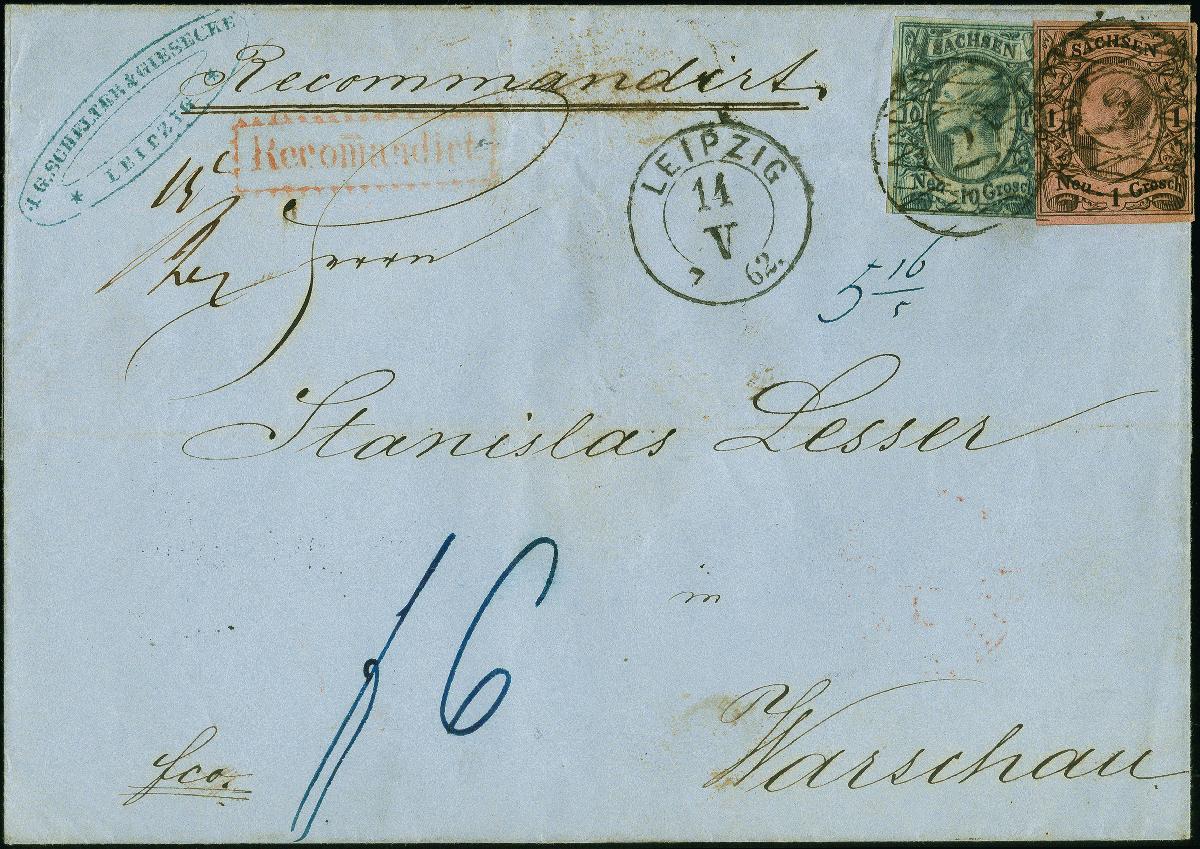 J. G. SCHELTER & GIESECKE
* LEIPZIG *
Recommandirt.
Recom̅andirt
SACHSEN
10
Neu-10 Grosch
SACHSEN
1 1
Neu-1 Grosch
LEIPZIG
14
V
62.
Herrn
5 16/5
Stanislas Lesser
f 6
in
Warschau
fco.